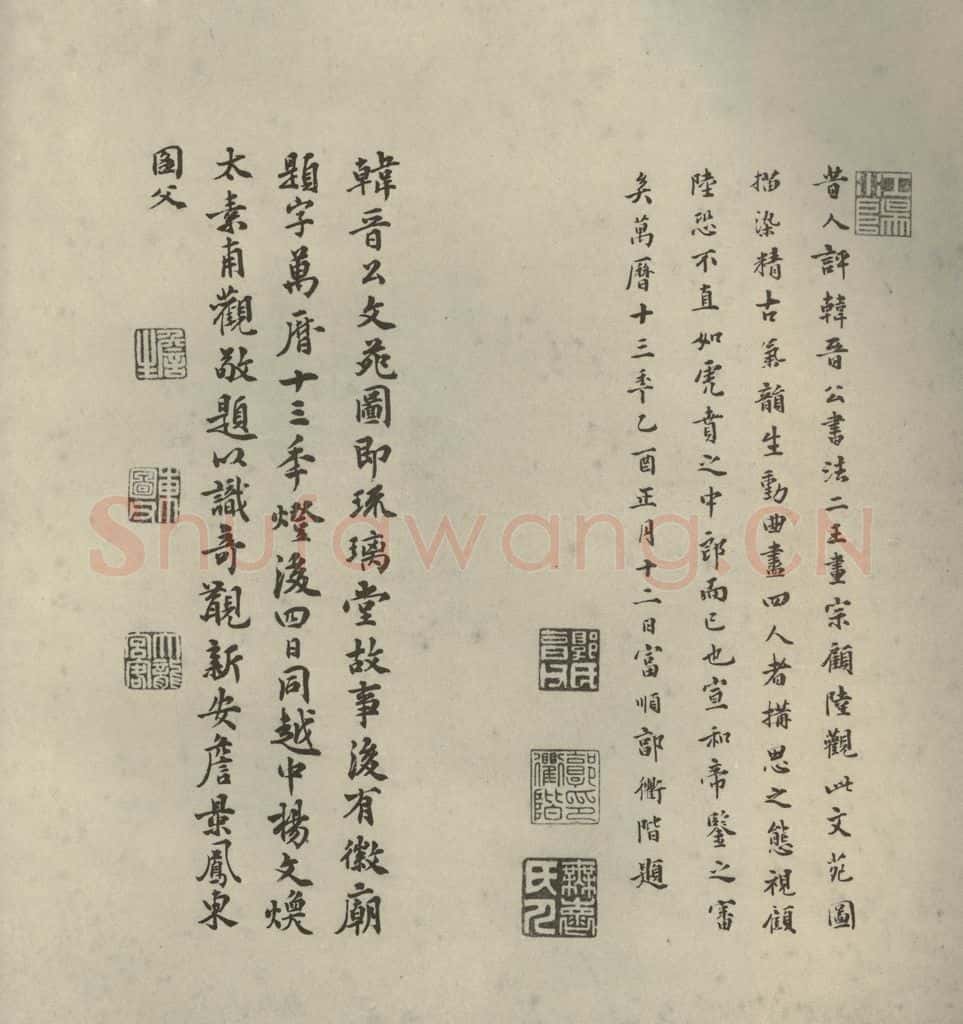 昔人評韓晋公書法二王畫宗顧陸觀此文苑圖
描染精古氣韻生動曲盡四人者搆思之態視顧
陸恐不直如虎賁之中郎而已也宣和帝鑒之審
矣萬曆十三年乙酉正月十二日富順郭衢階題
韓晋公文苑圖即琉璃堂故事後有徽廟
題字萬曆十三年燈後四日同越中楊文煥
太素甫觀敬題以識奇覯新安詹景鳳東
圖父
郭氏
郭印衢階
東圖父
Shufawang.CN